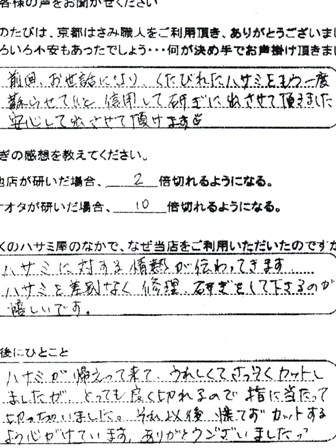 客様の声をお聞かせください
のたびは、京都はさみ職人をご利用頂き、ありがとうございま
ろいろ不安もあったでしょう・・・何が決め手でお声掛け頂きま
前回、お世話になり くたびれたハサミをもう一度
蘇らせてくれと 信用して研ぎに出させて頂きました
安心して出させて頂けます
ぎの感想を教えてください。
他店が研いだ場合、 2 倍切れるようになる。
オタが研いだ場合、 10 倍切れるようになる。
くのハサミ屋のなかで、なぜ当店をご利用いただいたのですか
ハサミに対する情熱が伝わってきます
ハサミを差別なく 修理、研ぎをして下さるのが
嬉しいです。
後にひとこと
ハサミが 帰えって来て、うれしくてさっそくカットし
ましたが、とっても良く切れるので 指に当たって
切っちゃいました。それ以後 慌てずカットする
よう心がけています。ありがとうございましたっ